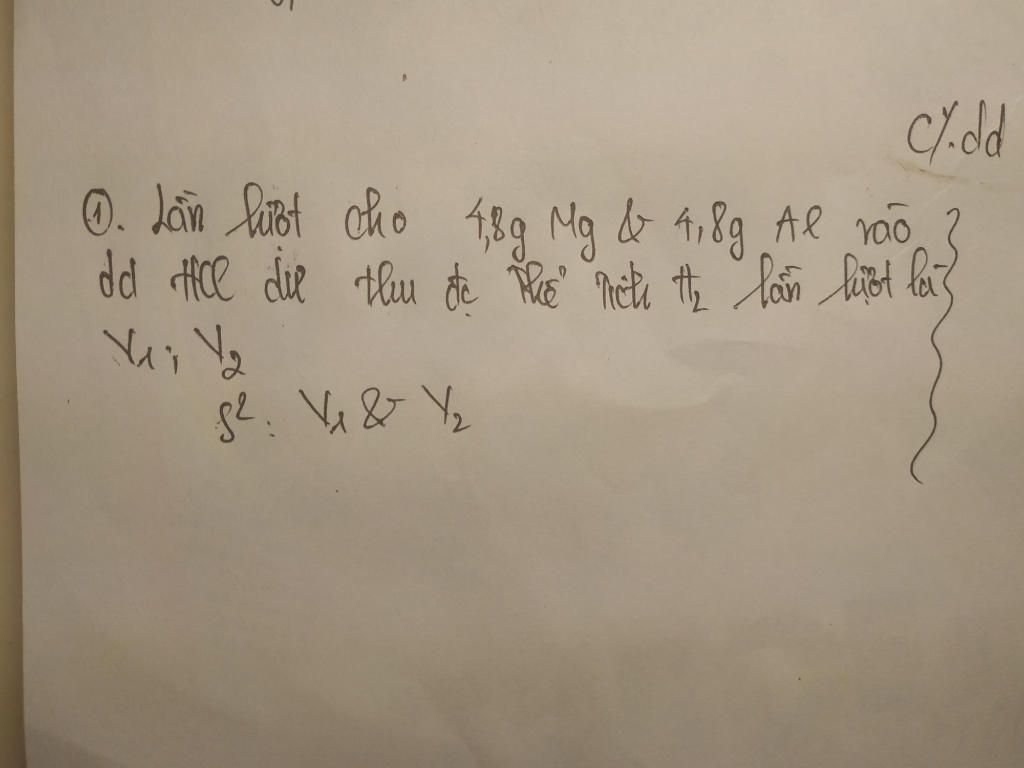 C%.dd
①. Lần lượt cho 4,8g Mg & 4,8g Al vào
dd HCl dư thu đc thể tích H₂ lần lượt là
V₁; V₂
s²: V₁ & V₂